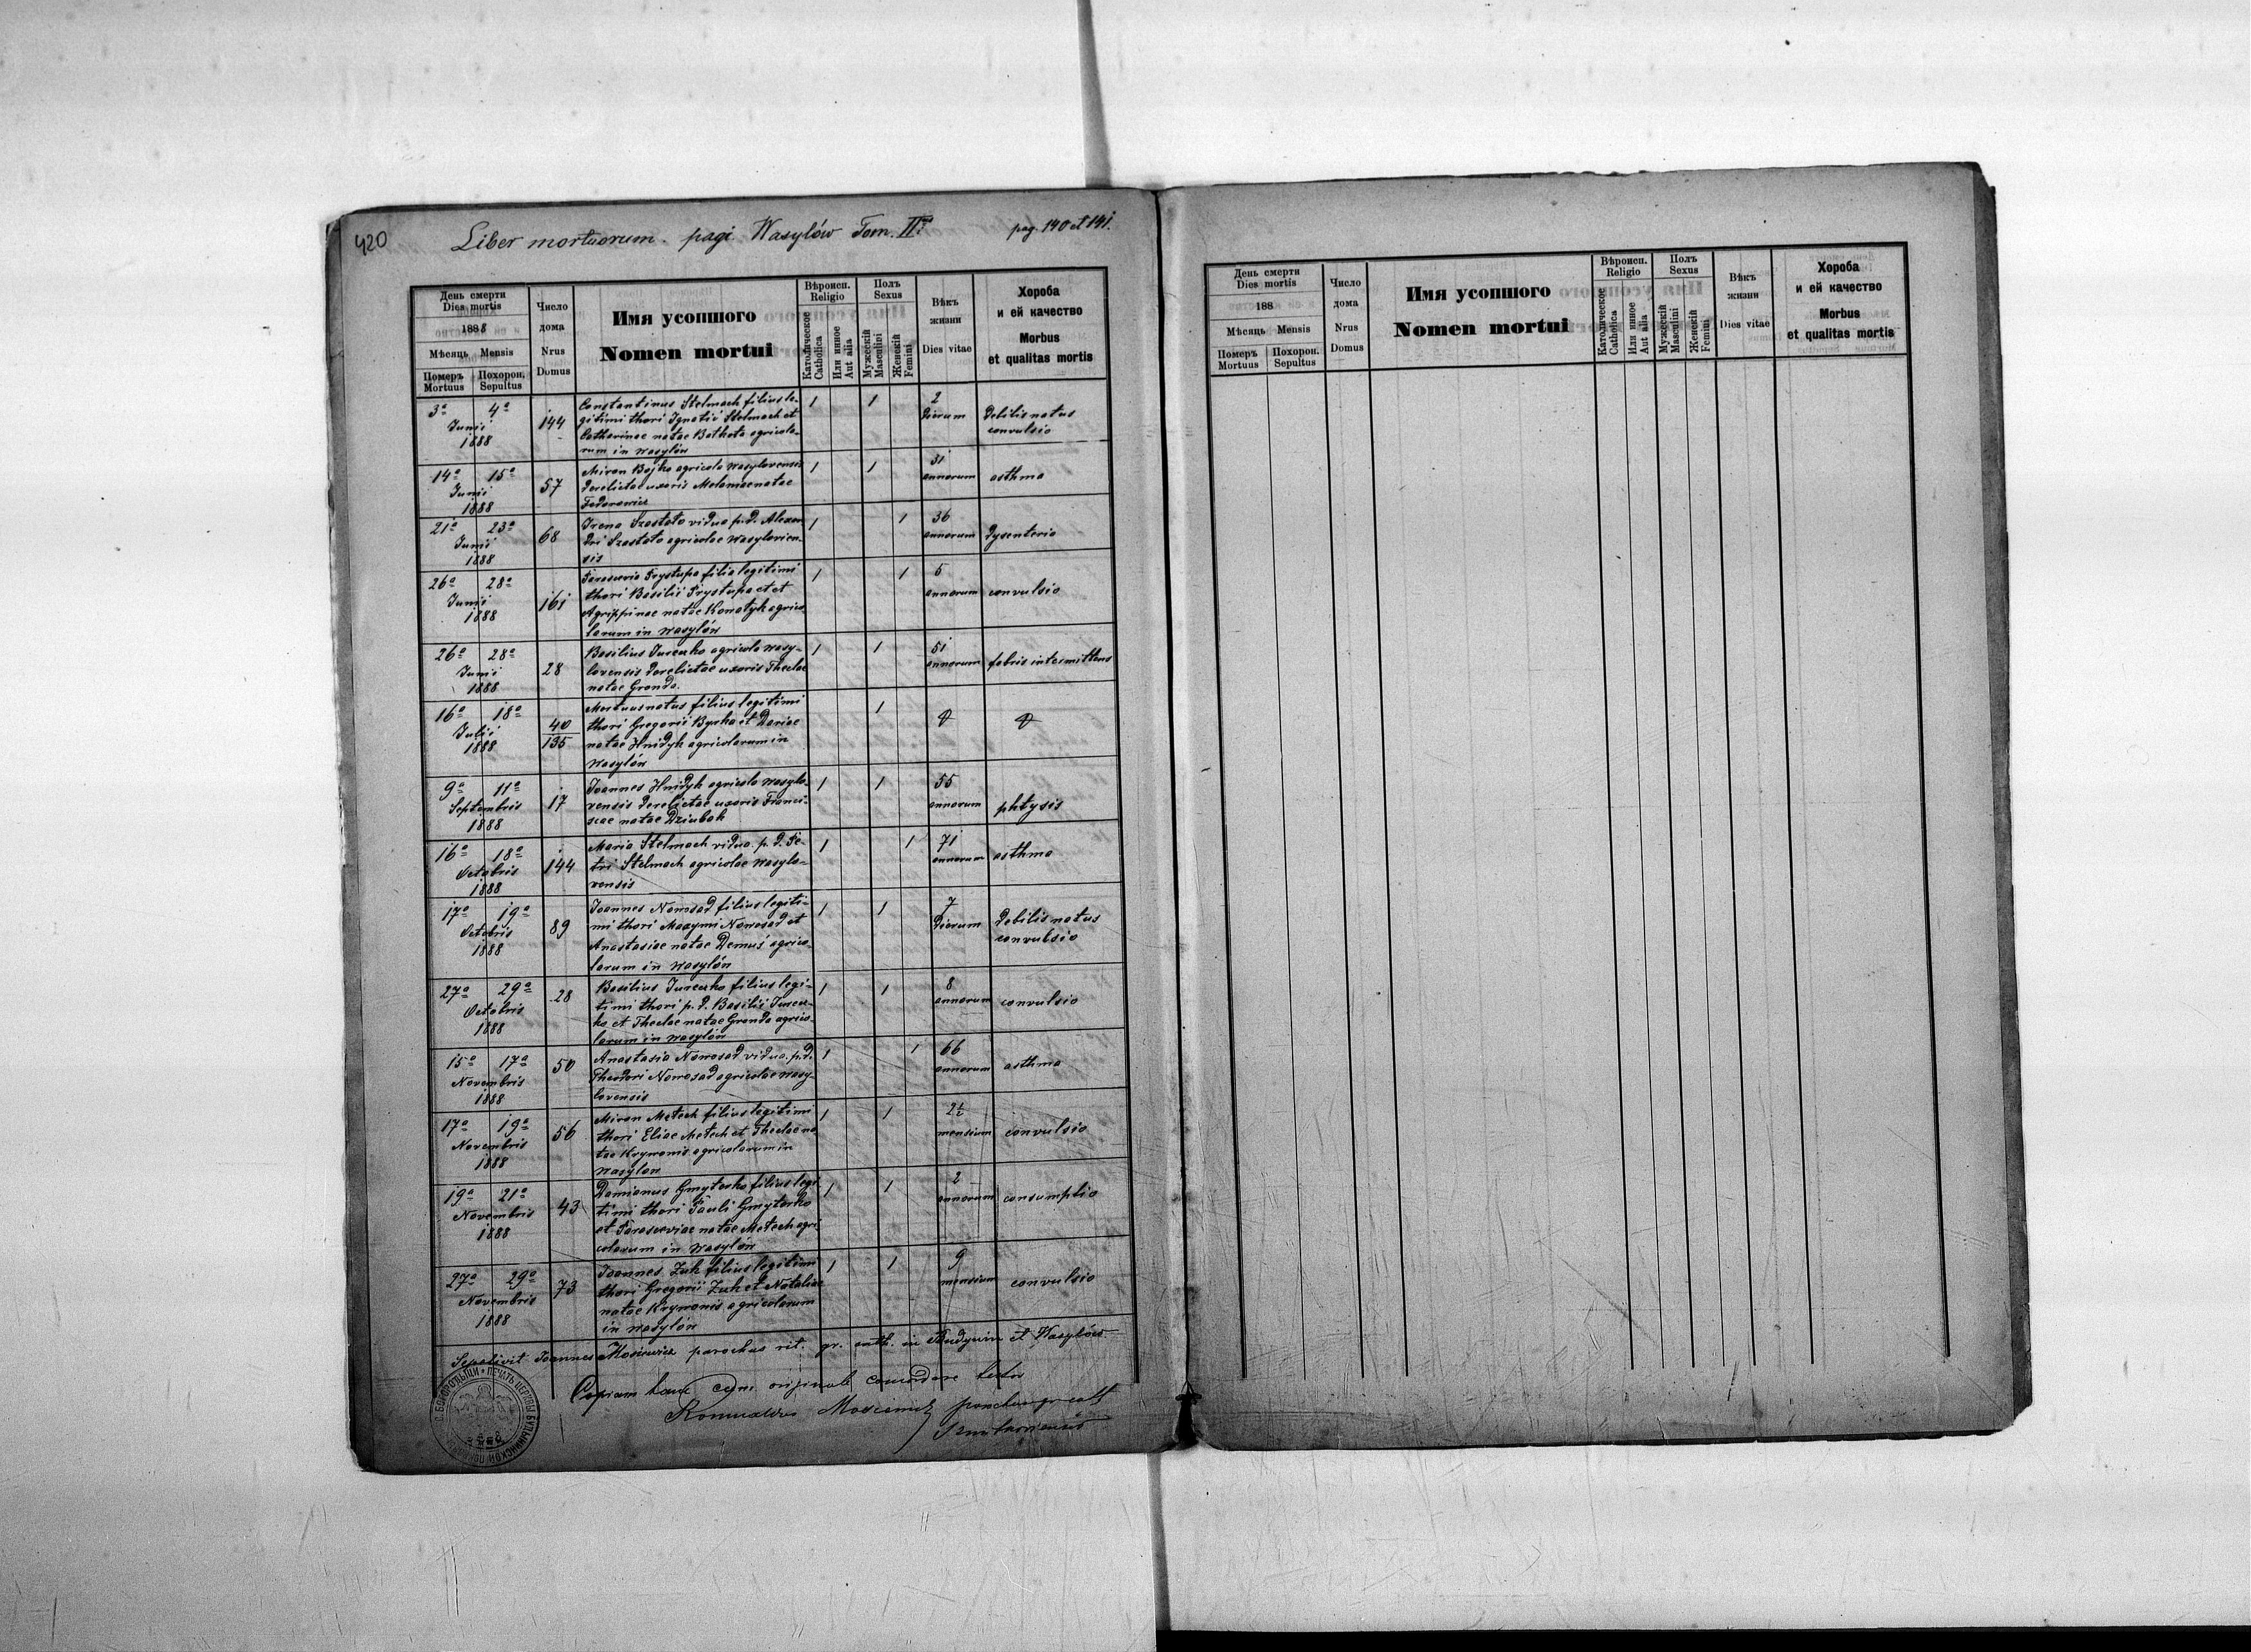 420
Liber mortuorum. pagi Wasylów Tom. II.
pag. 140 et 141.
День смерти
Dies mortis
1888
Мѣсяць Mensis
Померъ Похорон.
Mortuus Sepultus
Число
дома
Nrus
Domus
Имя усопшого
Nomen mortui
Вѣроисп.
Religio
Католическое
Catholica
Или инное
Aut alia
Полъ
Sexus
Мужескій
Masculini
Женскій
Femini
Вѣкъ
жизни
Dies vitae
Хороба
и ей качество
Morbus
et qualitas mortis
3a 4a
Junii
1888
144
Constantinus Stelmach filius le-
gitimi thori Ignatii Stelmach et
Catharinae natae Bathota agricola-
rum in Wasylów
1 1
2
dierum
debilis natus
convulsio
14a 15a
Junii
1888
57
Miron Bojko agricola wasylovensis
derelictae uxoris Melaniae natae
Fedorowicz
1 1
31
annorum
asthma
21a 23a
Junii
1888
68
Irena Szostato vidua p. d. Alexan
dri Szostato agricolae wasyloven-
sis
1 1
36
annorum
dysenteria
26a 28a
Junii
1888
161
Parascevia Prystupa filia legitimi
thori Basilii Prystupa et et
Agrippinae natae Konatyk agrico
larum in Wasylów
1 1
5
annorum
convulsio
26a 28a
Junii
1888
28
Basilius Jureczko agricola wasy-
lovensis derelictae uxoris Theclae
natae Gronda.
1 1
51
annorum
febris intermittens
16a 18a
Julii
1888
40
135
Mortuus natus filius legitimi
thori Gregorii Byrka et Dariae
natae Hnidyk agricolarum in
Wasylów
1
9a 11a
Septembris
1888
17
Joannes Hnidyk agricola wasylo-
vensis derelictae uxoris Franci-
scae natae Dziubak
1 1
55
annorum
phtysis
16a 18a
Octobris
1888
144
Maria Stelmach vidua p. d. Pe-
tri Stelmach agricolae wasylo-
vensis
1 1
71
annorum
asthma
17a 19a
Octobris
1888
89
Joannes Nowosad filius legiti-
mi thori Maxymi Nowosad et
Anastasiae natae Demuś agrico-
larum in Wasylów
1 1
7
dierum
debilis natus
convulsio
27a 29a
Octobris
1888
28
Basilius Jureczko filius legi-
timi thori p. d. Basilii Jurecz-
ko et Theclae natae Gronda agrico-
larum in Wasylów
1 1
8
annorum
convulsio
15a 17a
Novembris
1888
50
Anastasia Nowosad vidua p. d.
Theodori Nowosad agricolae wasy-
lovensis
1 1
66
annorum
asthma
17a 19a
Novembris
1888
56
Miron Metech filius legitimi
thori Eliae Metech et Theclae na
tae Krywonis agricolarum in
Wasylow
1 1
2½
mensium
convulsio
19a 21a
Novembris
1888
43
Damianus Gmyterko filius legi
timi thori Pauli Gmyterko
et Parasceviae natae Metech agri
colarum in Wasylów
1 1
2
annorum
consumptio
27a 29a
Novembris
1888
73
Joannes Zuk filius legitimi
thori Gregorii Zuk et Nataliae
natae Krywonis agricolarum
in Wasylów
1 1
9
mensium
convulsio
Sepelivit Joannes Mosiewicz parochus rit. gr. cath. in Budynin et Wasylów
Copiam hanc cum originali concordare testor
parochus gr cath
День смерти
Dies mortis
188
Мѣсяць Mensis
Померъ Похорон.
Mortuus Sepultus
Число
дома
Nrus
Domus
Имя усопшого
Nomen mortui
Вѣроисп.
Religio
Католическое
Catholica
Или инное
Aut alia
Полъ
Sexus
Мужескій
Masculini
Женскій
Femini
Вѣкъ
жизни
Dies vitae
Хороба
и ей качество
Morbus
et qualitas mortis